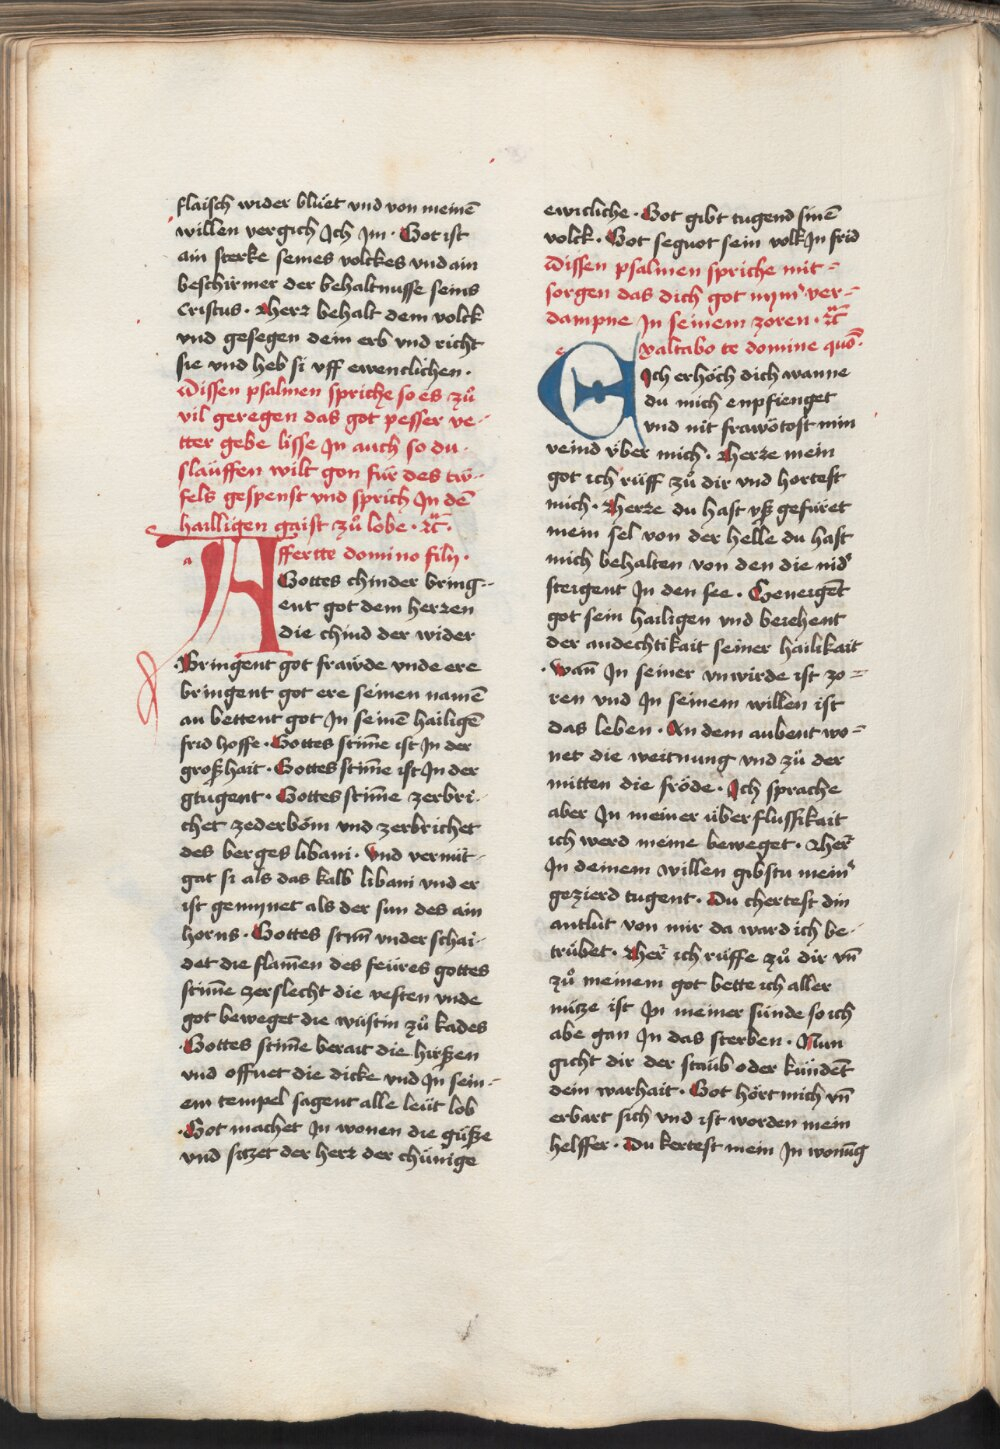 flaisch wider blüet vnd von meinē
willen vergich Ich Im · Got ist
ain sterke seines volckes vnd ain
beschirmer der behaltnusse seins
Cristus · Herr behalt dem volck
vnd gesegen dein erb vnd richt
sie vnd heb si vff ewenclichen ·
Dissen psalmen spriche so es zů
vil geregen das got pesser we-
tter gebe lisse In auch so du
slauffen wilt gon für des tü-
fels gespenst vnd sprich In dē
hailligen gaist zů lobe · ⁊c̄ ·
a Affertte domino filij ·
Gottes chinder bring-
ent got dem herren
die chind der wider
Bringent got frawde vnde ere
bringent got ere seinen namē
an bettent got In seinē hailigē
frid hoffe · Gottes stim̄e ist In der
großhait · Gottes stim̄e ist In der
gtugent · Gottes stim̄e zerbri-
chet zederböm vnd zerbrichet
des berges libani · Vnd vermüt-
gat si als das kalb libani vnd er
ist gemynet als der sun des ain
horns · Gottes stim̄ vnder schai-
det die flam̄en des feüres gottes
stim̄e zerslecht die vesten vnde
got beweget die wüstin zů kades
Gottes stim̄e berait die hirßen
vnd offnet die dicke vnd In sein-
em tempel sagent alle leüt lob
Got machet In wonen die güße
vnd sitzet der herr der chünige
ewicliche · Got gibt tugend sinē
volck · Got segnot sein volk In frid
Dissen psalmen spriche mit-
sorgen das dich got nym̄ ver-
dampne In seinem zoren · ⁊c̄
e Exaltabo te domine quō ·
Ich erhöch dich wanne
du mich enpfienget
vnd nit frawötost min
veind v̈ber mich · Herre mein
got ich rüff zů dir vnd hortest
mich · Herre du hast vß gefüret
mein sel von der helle du hast
mich behalten von den die nid'
steigent In den see · Geneigēt
got sein hailigen vnd beiehent
der andechtikait seiner hailikait
· Wan̄ In seiner vnwirde ist zo-
ren vnd In seinem willen ist
das leben · An dem aubent wo-
net die weitnung vnd zů der
mitten die fröde · Ich sprache
aber In meiner über flussikait
ich werd meine beweget · Her'
In deinem willen gibstu mein'
gezierd tugent · Du chertest din
antlüt von mir da ward ich be-
trübet · Her' ich rüffe zů dir vn̄
zů meinem got bette ich aller
nütze ist In meiner sünde so ich
abe gan In das sterben · Nun
gicht dir der staub oder kündēt
dein warhait · Got hört mich vn̄
erbart sich vnd ist worden mein
helffer · Du kertest mein In wonūg